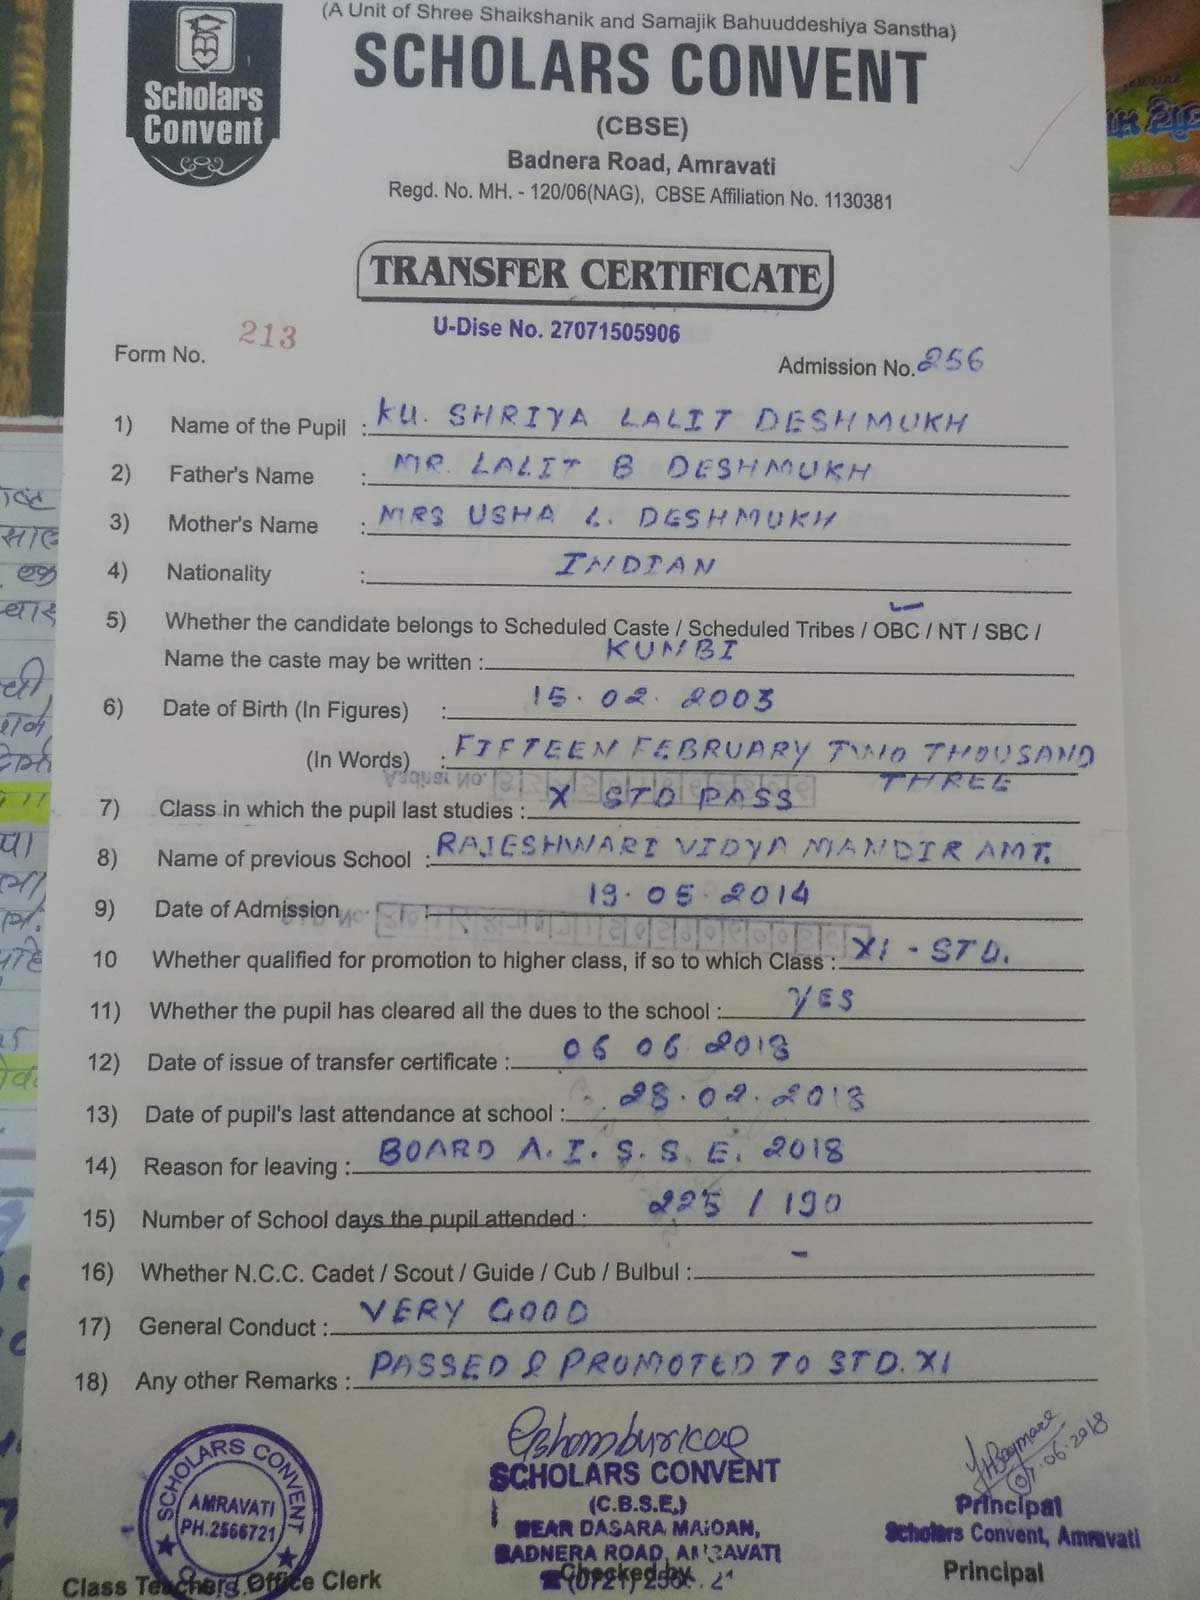 (A Unit of Shree Shaikshanik and Samajik Bahuuddeshiya Sanstha)
Scholars
Convent
SCHOLARS CONVENT
(CBSE)
Badnera Road, Amravati
Regd. No. MH. - 120/06(NAG), CBSE Affiliation No. 1130381
TRANSFER CERTIFICATE
U-Dise No. 27071505906
Form No. 213
Admission No. 256
1) Name of the Pupil : KU. SHRIYA LALIT DESHMUKH
2) Father's Name : MR. LALIT B DESHMUKH
3) Mother's Name : MRS USHA L. DESHMUKH
4) Nationality : INDIAN
5) Whether the candidate belongs to Scheduled Caste / Scheduled Tribes / OBC / NT / SBC /
Name the caste may be written : KUNBI
6) Date of Birth (In Figures) : 15.02.2003
(In Words) : FIFTEEN FEBRUARY TWO THOUSAND
THREE
Aadhar No.
7) Class in which the pupil last studies : X STD PASS
8) Name of previous School : RAJESHWARI VIDYA MANDIR AMT.
9) Date of Admission : 19.05.2014
10 Whether qualified for promotion to higher class, if so to which Class : XI - STD.
11) Whether the pupil has cleared all the dues to the school : YES
12) Date of issue of transfer certificate : 06 06 2018
13) Date of pupil's last attendance at school : 28.02.2018
14) Reason for leaving : BOARD A.I.S.S.E. 2018
15) Number of School days the pupil attended : 225 / 190
16) Whether N.C.C. Cadet / Scout / Guide / Cub / Bulbul : -
17) General Conduct : VERY GOOD
18) Any other Remarks : PASSED & PROMOTED TO STD. XI
SCHOLARS CONVENT
AMRAVATI
PH.2566721
SCHOLARS CONVENT
(C.B.S.E.)
NEAR DASARA MAIDAN,
BADNERA ROAD, AMRAVATI
(0721)
06.2018
Principal
Scholars Convent, Amravati
Class Teachers Office Clerk
Checked by
Principal